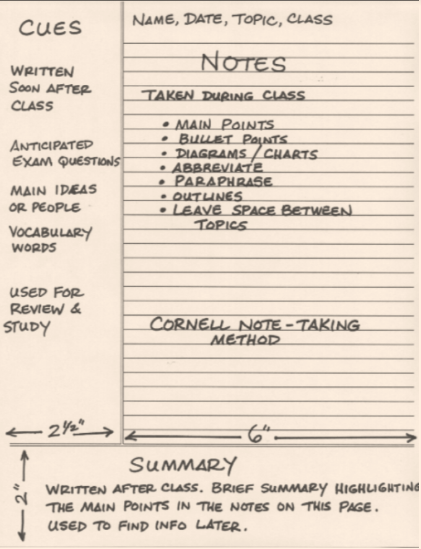 CUES
WRITTEN
SOON AFTER
CLASS
ANTICIPATED
EXAM QUESTIONS
MAIN IDEAS
OR PEOPLE
VOCABULARY
WORDS
USED FOR
REVIEW &
STUDY
2½"
NAME, DATE, TOPIC, CLASS
NOTES
TAKEN DURING CLASS
• MAIN POINTS
• BULLET POINTS
• DIAGRAMS/CHARTS
• ABBREVIATE
• PARAPHRASE
• OUTLINES
• LEAVE SPACE BETWEEN
TOPICS
CORNELL NOTE-TAKING
METHOD
6"
2"
SUMMARY
WRITTEN AFTER CLASS. BRIEF SUMMARY HIGHLIGHTING
THE MAIN POINTS IN THE NOTES ON THIS PAGE.
USED TO FIND INFO LATER.